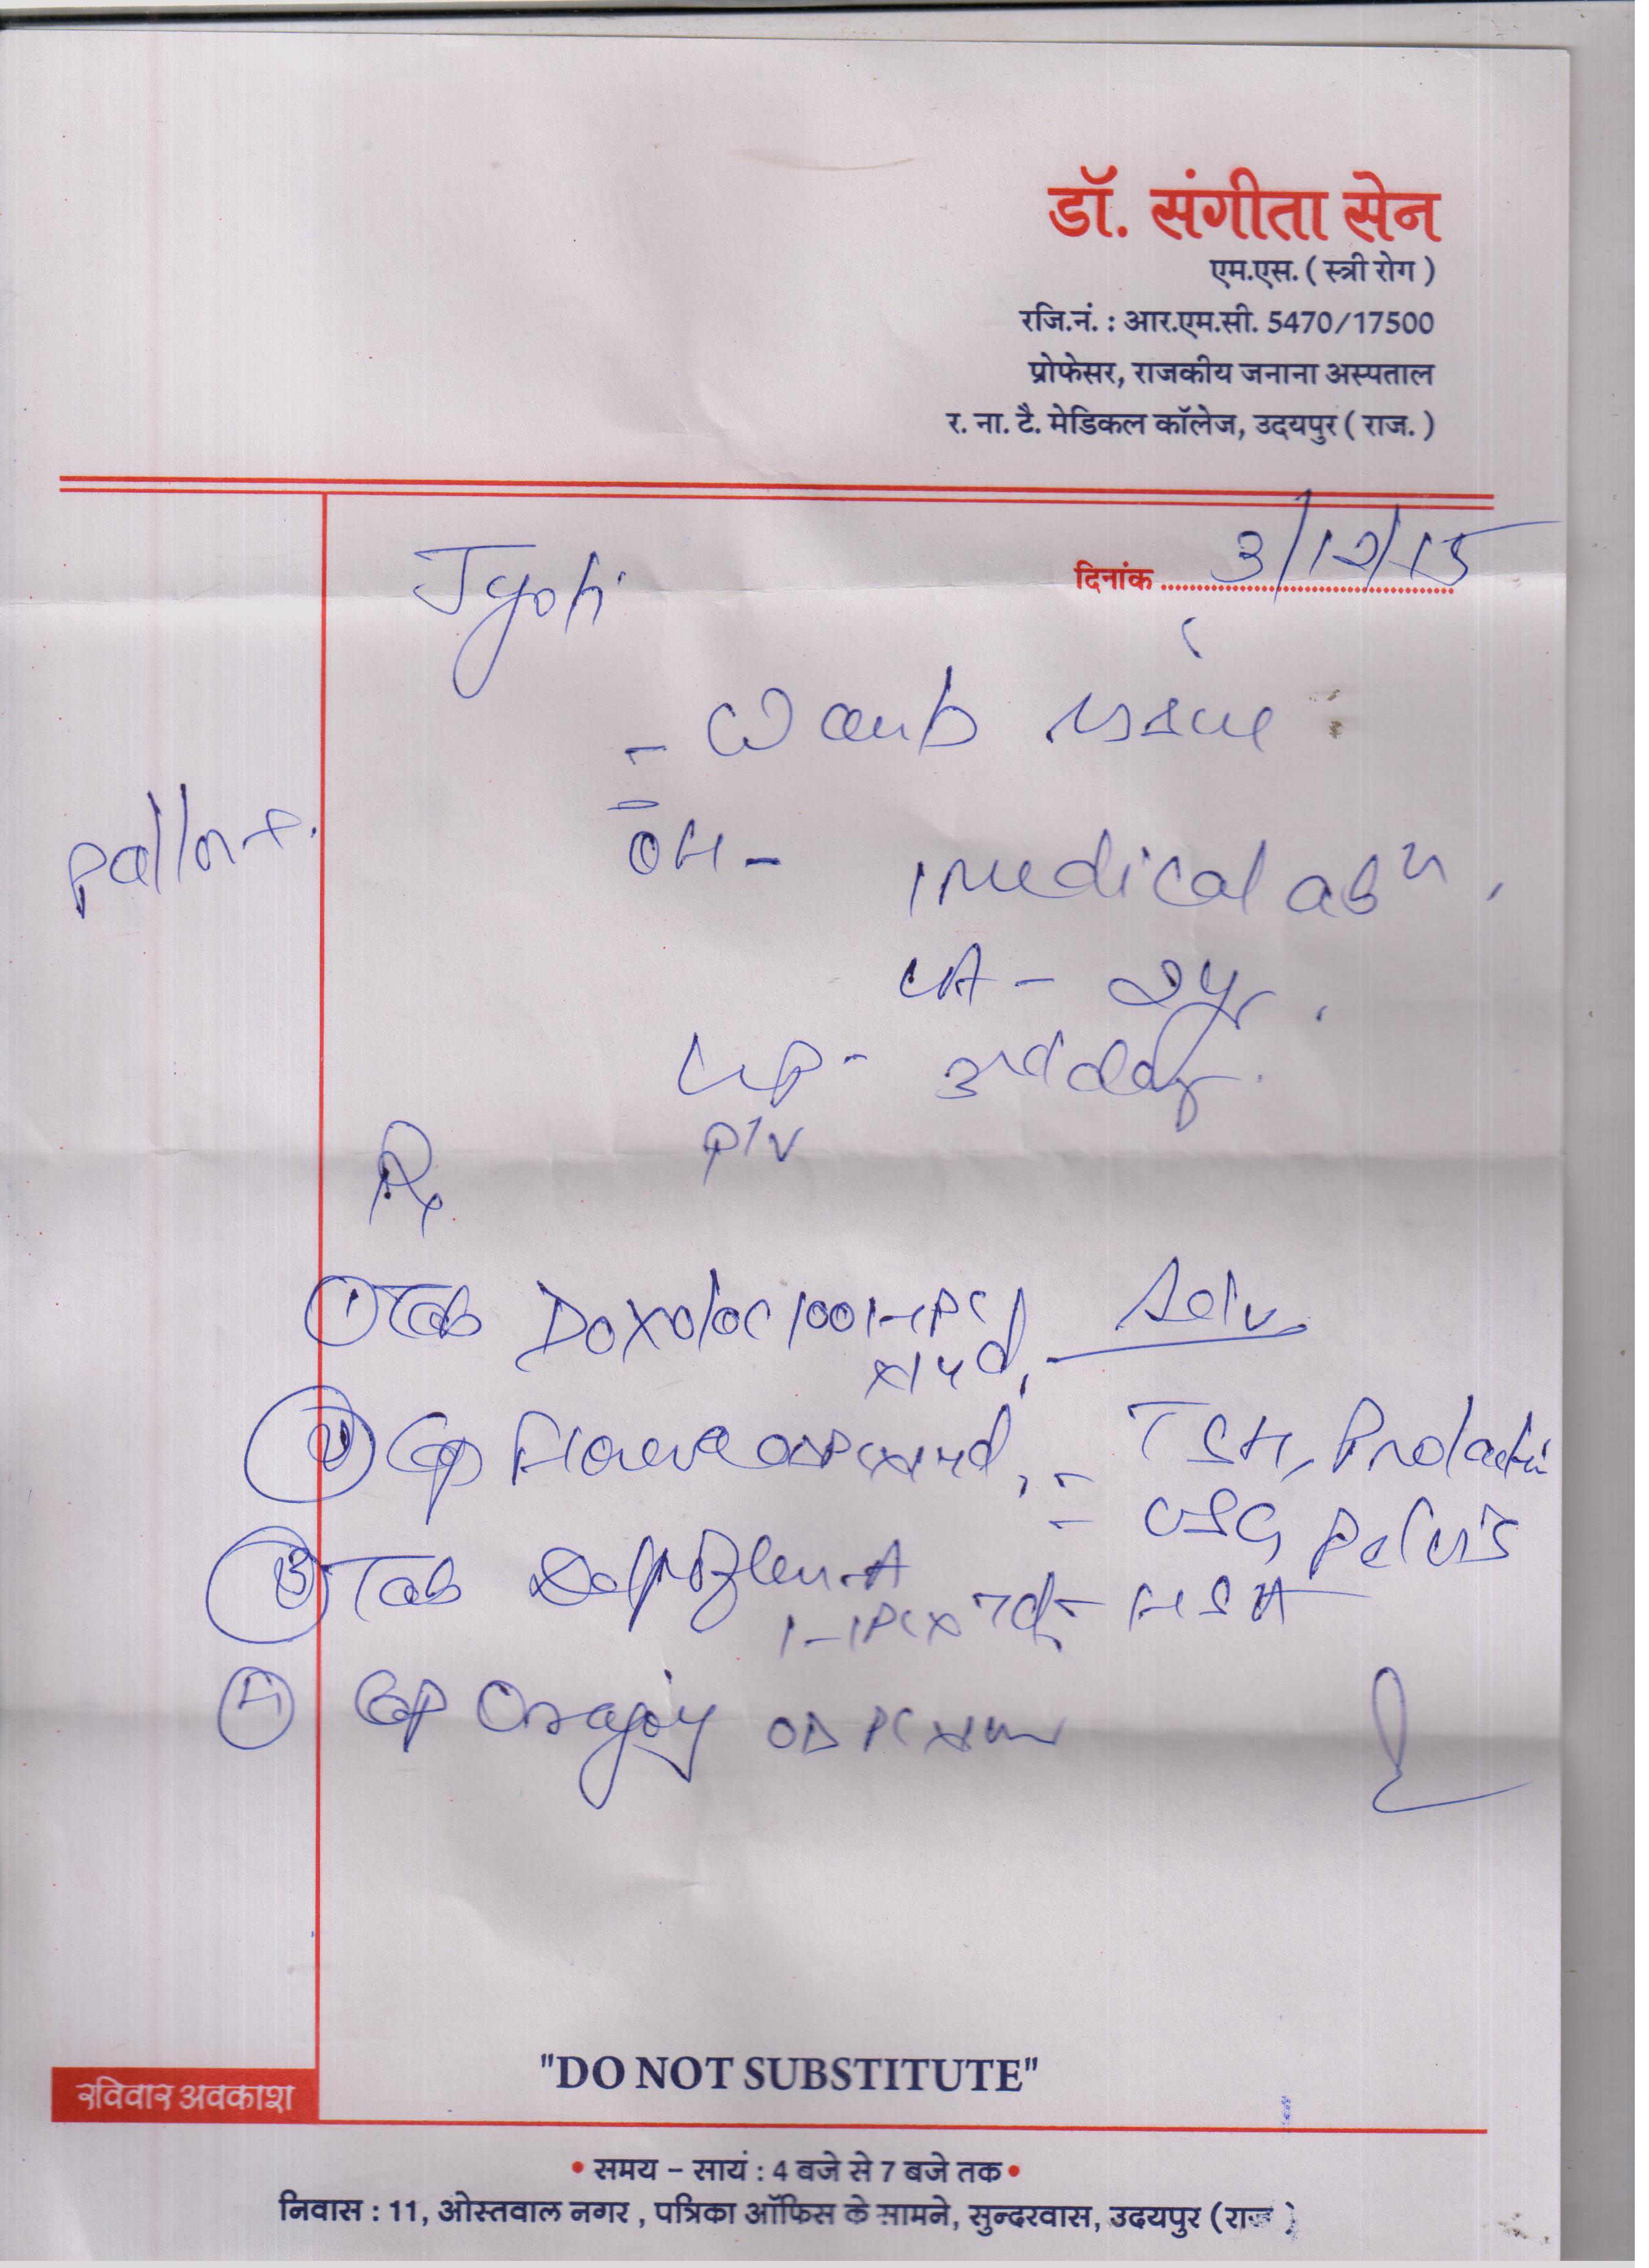 डॉ. संगीता सेन
एम.एस. ( स्त्री रोग )
रजि.नं. : आर.एम.सी. 5470/17500
प्रोफेसर, राजकीय जनाना अस्पताल
र. ना. टै. मेडिकल कॉलेज, उदयपुर ( राज. )
दिनांक 3/12/15
Jyoti
- Wants issue
Pallor +.
OH - 1 medical abn.
LA - 2yr.
LMP - 3rd day.
P/V
Rx
① Tab Doxoloc 100 1-1PC x14d.
Adv
② Cap OD PC x14d,
- TSH, Prolactin
- USG Pelvis
③ Tab
1-1PC x 7d
- HSA
④ Cap OD PC
"DO NOT SUBSTITUTE"
रविवार अवकाश
• समय - सायं : 4 बजे से 7 बजे तक •
निवास : 11, ओस्तवाल नगर , पत्रिका ऑफिस के सामने, सुन्दरवास, उदयपुर ( राज )